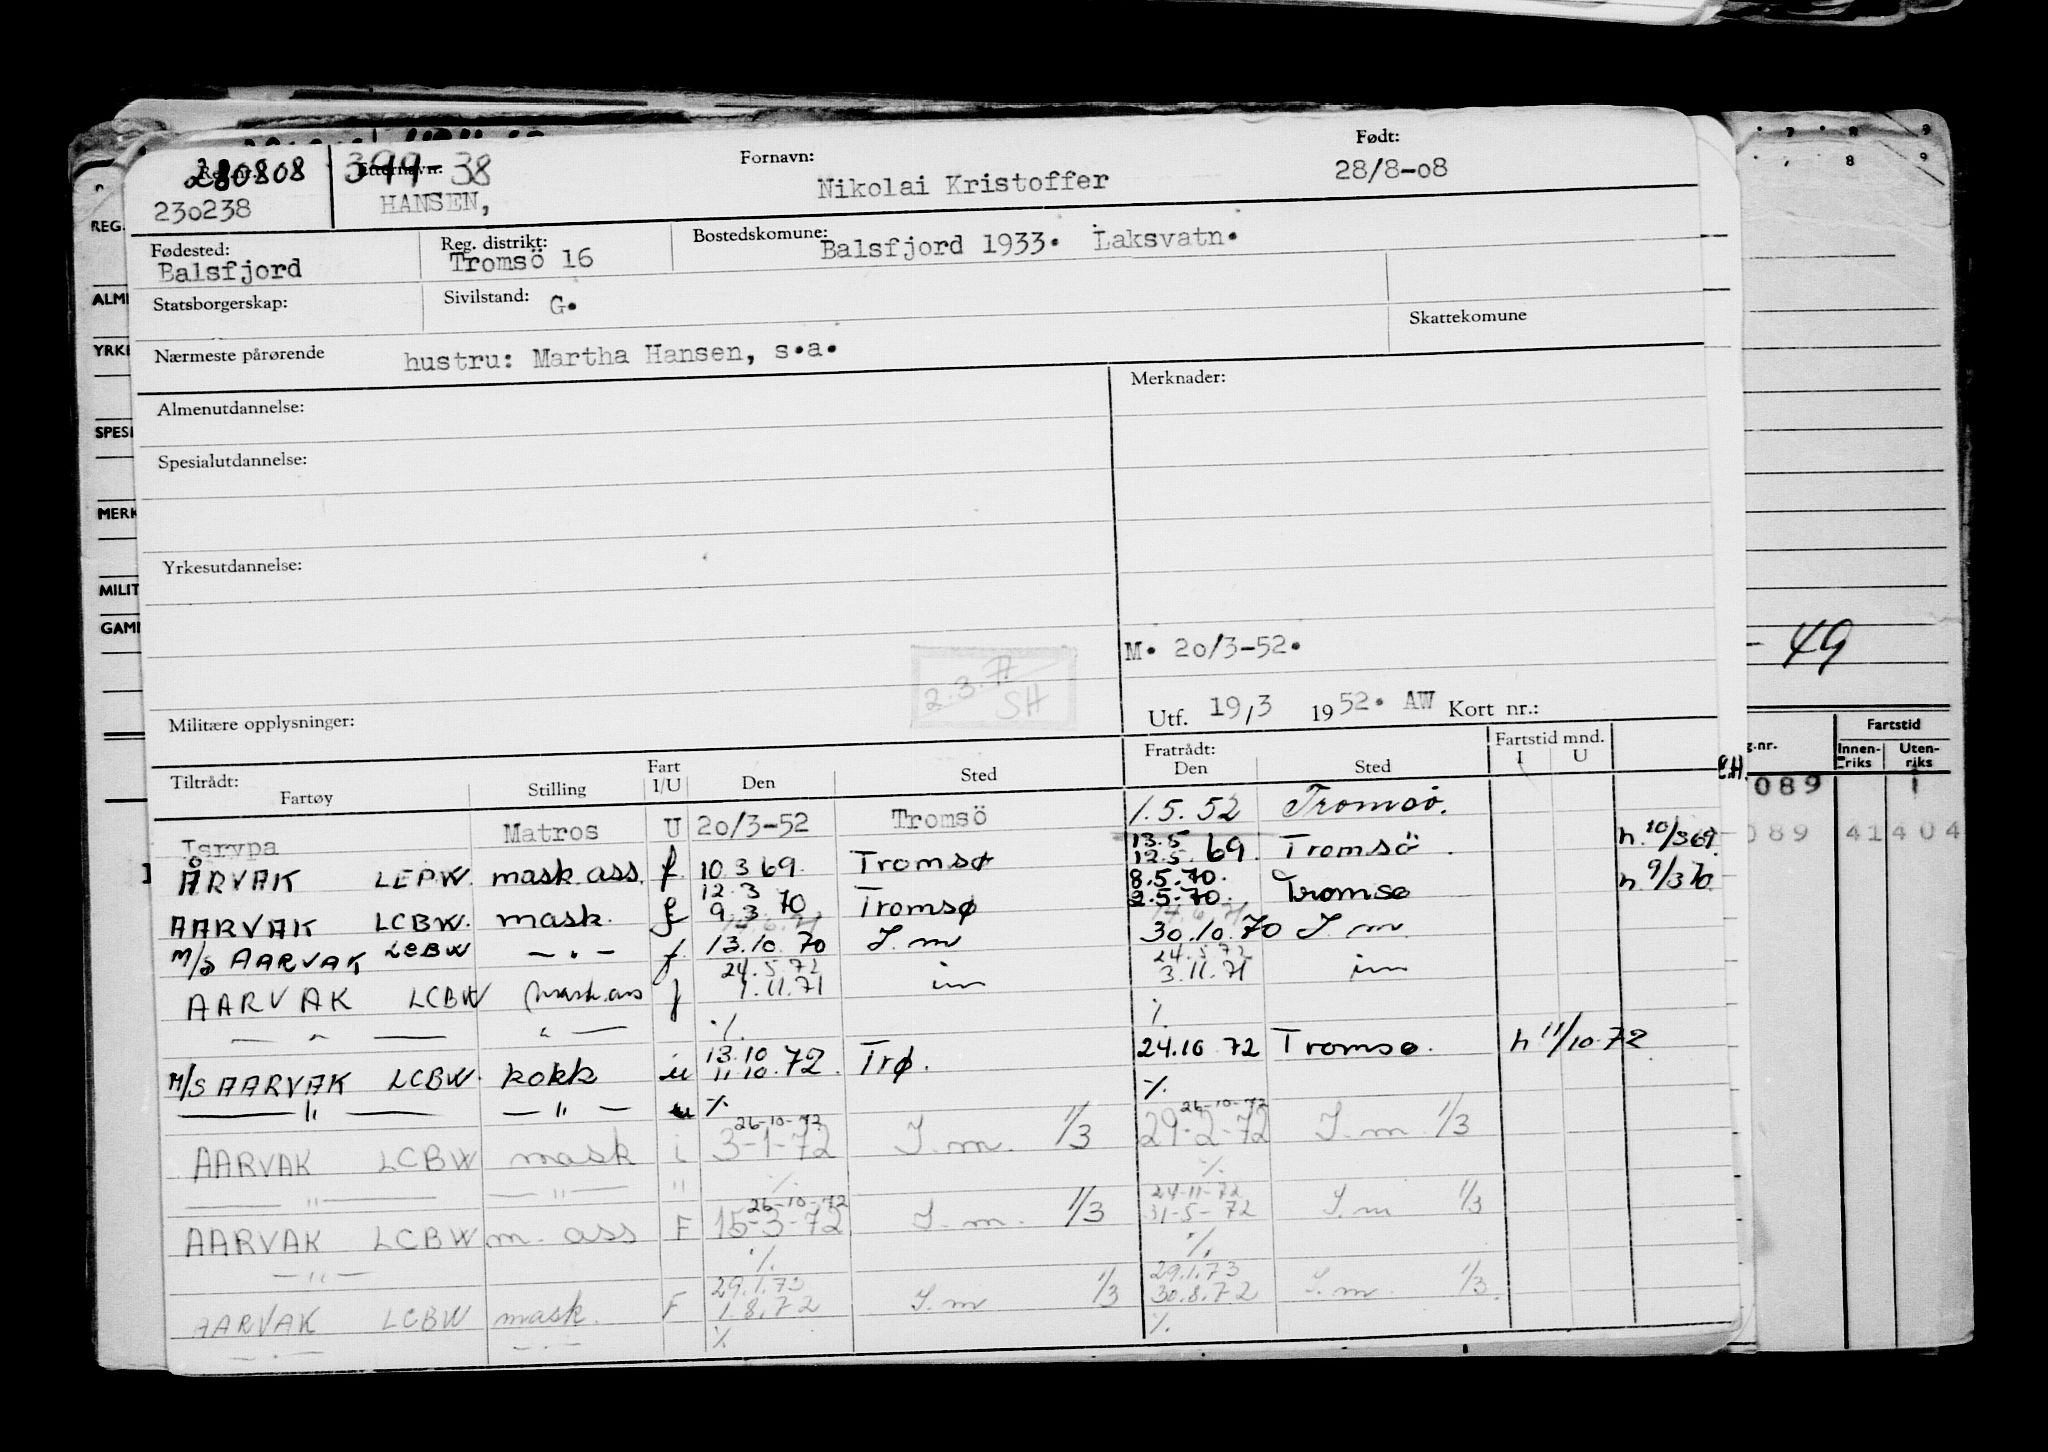 Reg.nr. 280808 Etternavn: 399-38 Fornavn: Født:
230238 HANSEN, Nikolai Kristoffer 28/8-08
Fødested: Reg. distrikt: Bostedskomune:
Balsfjord Tromsö 16 Balsfjord 1933. Laksvatn.
Statsborgerskap: Sivilstand: G. Skattekomune
Nærmeste pårørende hustru: Martha Hansen, s.a.
Almenutdannelse: Merknader:
Spesialutdannelse:
Yrkesutdannelse:
M. 20/3-52.
2.3.71 SH
Militære opplysninger: Utf. 19/3 1952. AW Kort nr.:
Tiltrådt: Fart Fratrådt: Fartstid mnd.
Fartøy Stilling I/U Den Sted Den Sted I U
Isrypa Matros U 20/3-52 Tromsö 1.5.52 Tromsö.
ÅRVAK mask.ass. f 10.3 69. Tromsø 13.5 12.5. 69. Tromsö. h. 10/3 69.
AARVAK LCBW. mask. f 12.3 9.3 70 Tromsø 8.5.70. 2.5.70. Tromsø h. 9/3 70.
M/S AARVAK LCBW — " — f 13.10.70 I.m 30.10.70 I.m.
AARVAK LCBW mask.ass f 24.5.72 1.11.71 im 24.5.72 3.11.71 im
— " — " — ·/. ·/.
M/S AARVAK LCBW. kokk u 13.10 11.10.72. Trø. 24.10.72 Tromsø. h 11/10.72
— " — — " — u ·/. ·/.
AARVAK LCBW mask i 26-10-72 3-1-72 I.m. 1/3 26-10-72 29-2-72 I.m. 1/3
— " — — " — " ·/. ·/.
AARVAK LCBW m. ass F 26-10-72 15-3-72 I.m. 1/3 24-11-72 31-5-72 I.m 1/3
— " — ·/. ·/.
AARVAK LCBW mask. F 29.1.73 1.8.72 I.m 1/3 29.1.73 30.8.72 I.m. 1/3
— " — — " — ·/. ·/.
REG.
ALM
YRK
SPES
MERK
MILIT
GAM
7 8 9
8 9
- 49
Fartstid
g.nr. Innen-riks Uten-riks
089 1
089 41 404